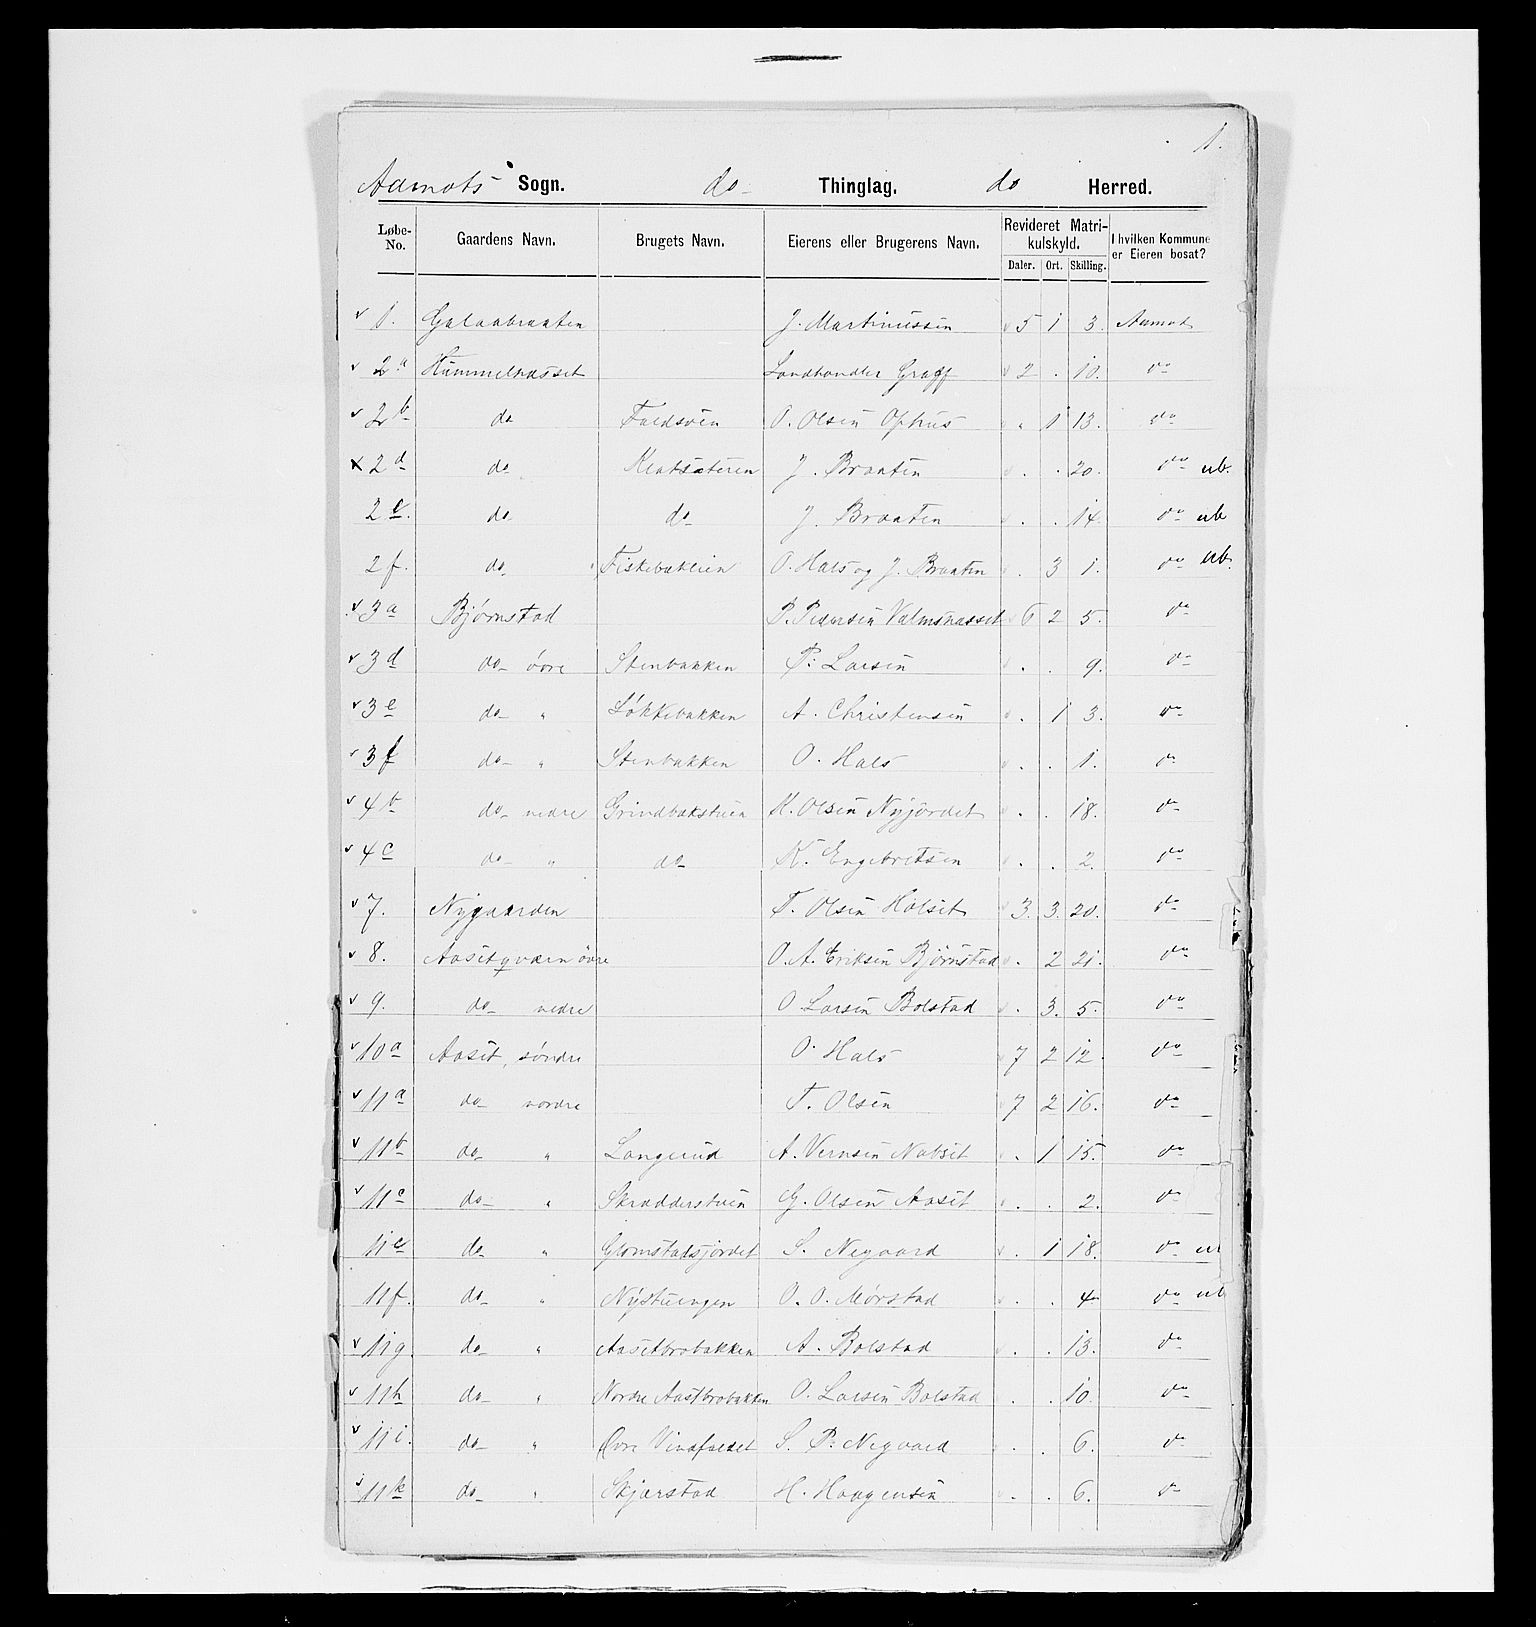 1.
Aamots Sogn. do Thinglag. do Herred.
Løbe-No. Gaardens Navn. Brugets Navn. Eierens eller Brugerens Navn. Revideret Matrikulskyld. I hvilken Kommune er Eieren bosat?
Daler. Ort. Skilling.
v 1. Galaabraaten J. Martinussen v 5 1 3. Aamot
v 2a Hummelnæsset Landhandler Graff v 2 . 10. do
v 2b do Faldsøen O. Olsen Ophus . 1 13. do
x 2d do J. Braaten . . 20. do ub.
2e. do do J. Braaten . . 14. do ub
2f. do Fiskebæklien O. Hals og J. Braaten . 3 1. do ub.
v 3a Bjørnstad P. Pedersen Valmsnæsset v 6 2 5. do
v 3d do øvre Stenbakken P. Larsen . . 9. do
v 3e do " Løkkebakken A. Christensen . 1 3. do
v 3f do " Stenbakken O. Hals . . 1. do
v 4b do nedre Grindbakstuen K. Olsen Nyjordet . . 18. do
v 4c do " do K. Engebretsen . . 2. do
v 7. Nygaarden T. Olsen Holset 3. 3. 20. do
v 8. Aasetqværn øvre O. A. Eriksen Bjørnstad . 2 21. do
v 9. do nedre O Larsen Bolstad . 3. 5. do
v 10a Aaset, søndre O. Hals 7 2 12. do
v 11a do nordre T. Olsen 7 2 16. do
v 11b do " Langrud A. Vernsen Nabset . 1 15. do
v 11c do " Skrædderstuen G. Olsen Aaset . . 2. do
11e do " Glomstadsjordet S. Negaard . 1 18. do ub
11f. do " Nystuengen O. O. Mørstad . . 4 do ub
v 11g do " Aasetbrobakken A. Bolstad . . 13. do
v 11h do " Nordre Aasetbrobakken O. Larsen Bolstad . . 10. do
v 11i. do " Øvre Vindfaldet S. P. Negaard . . 6. do
v 11k do " Skjærstad H. Haagensen . . 6. do